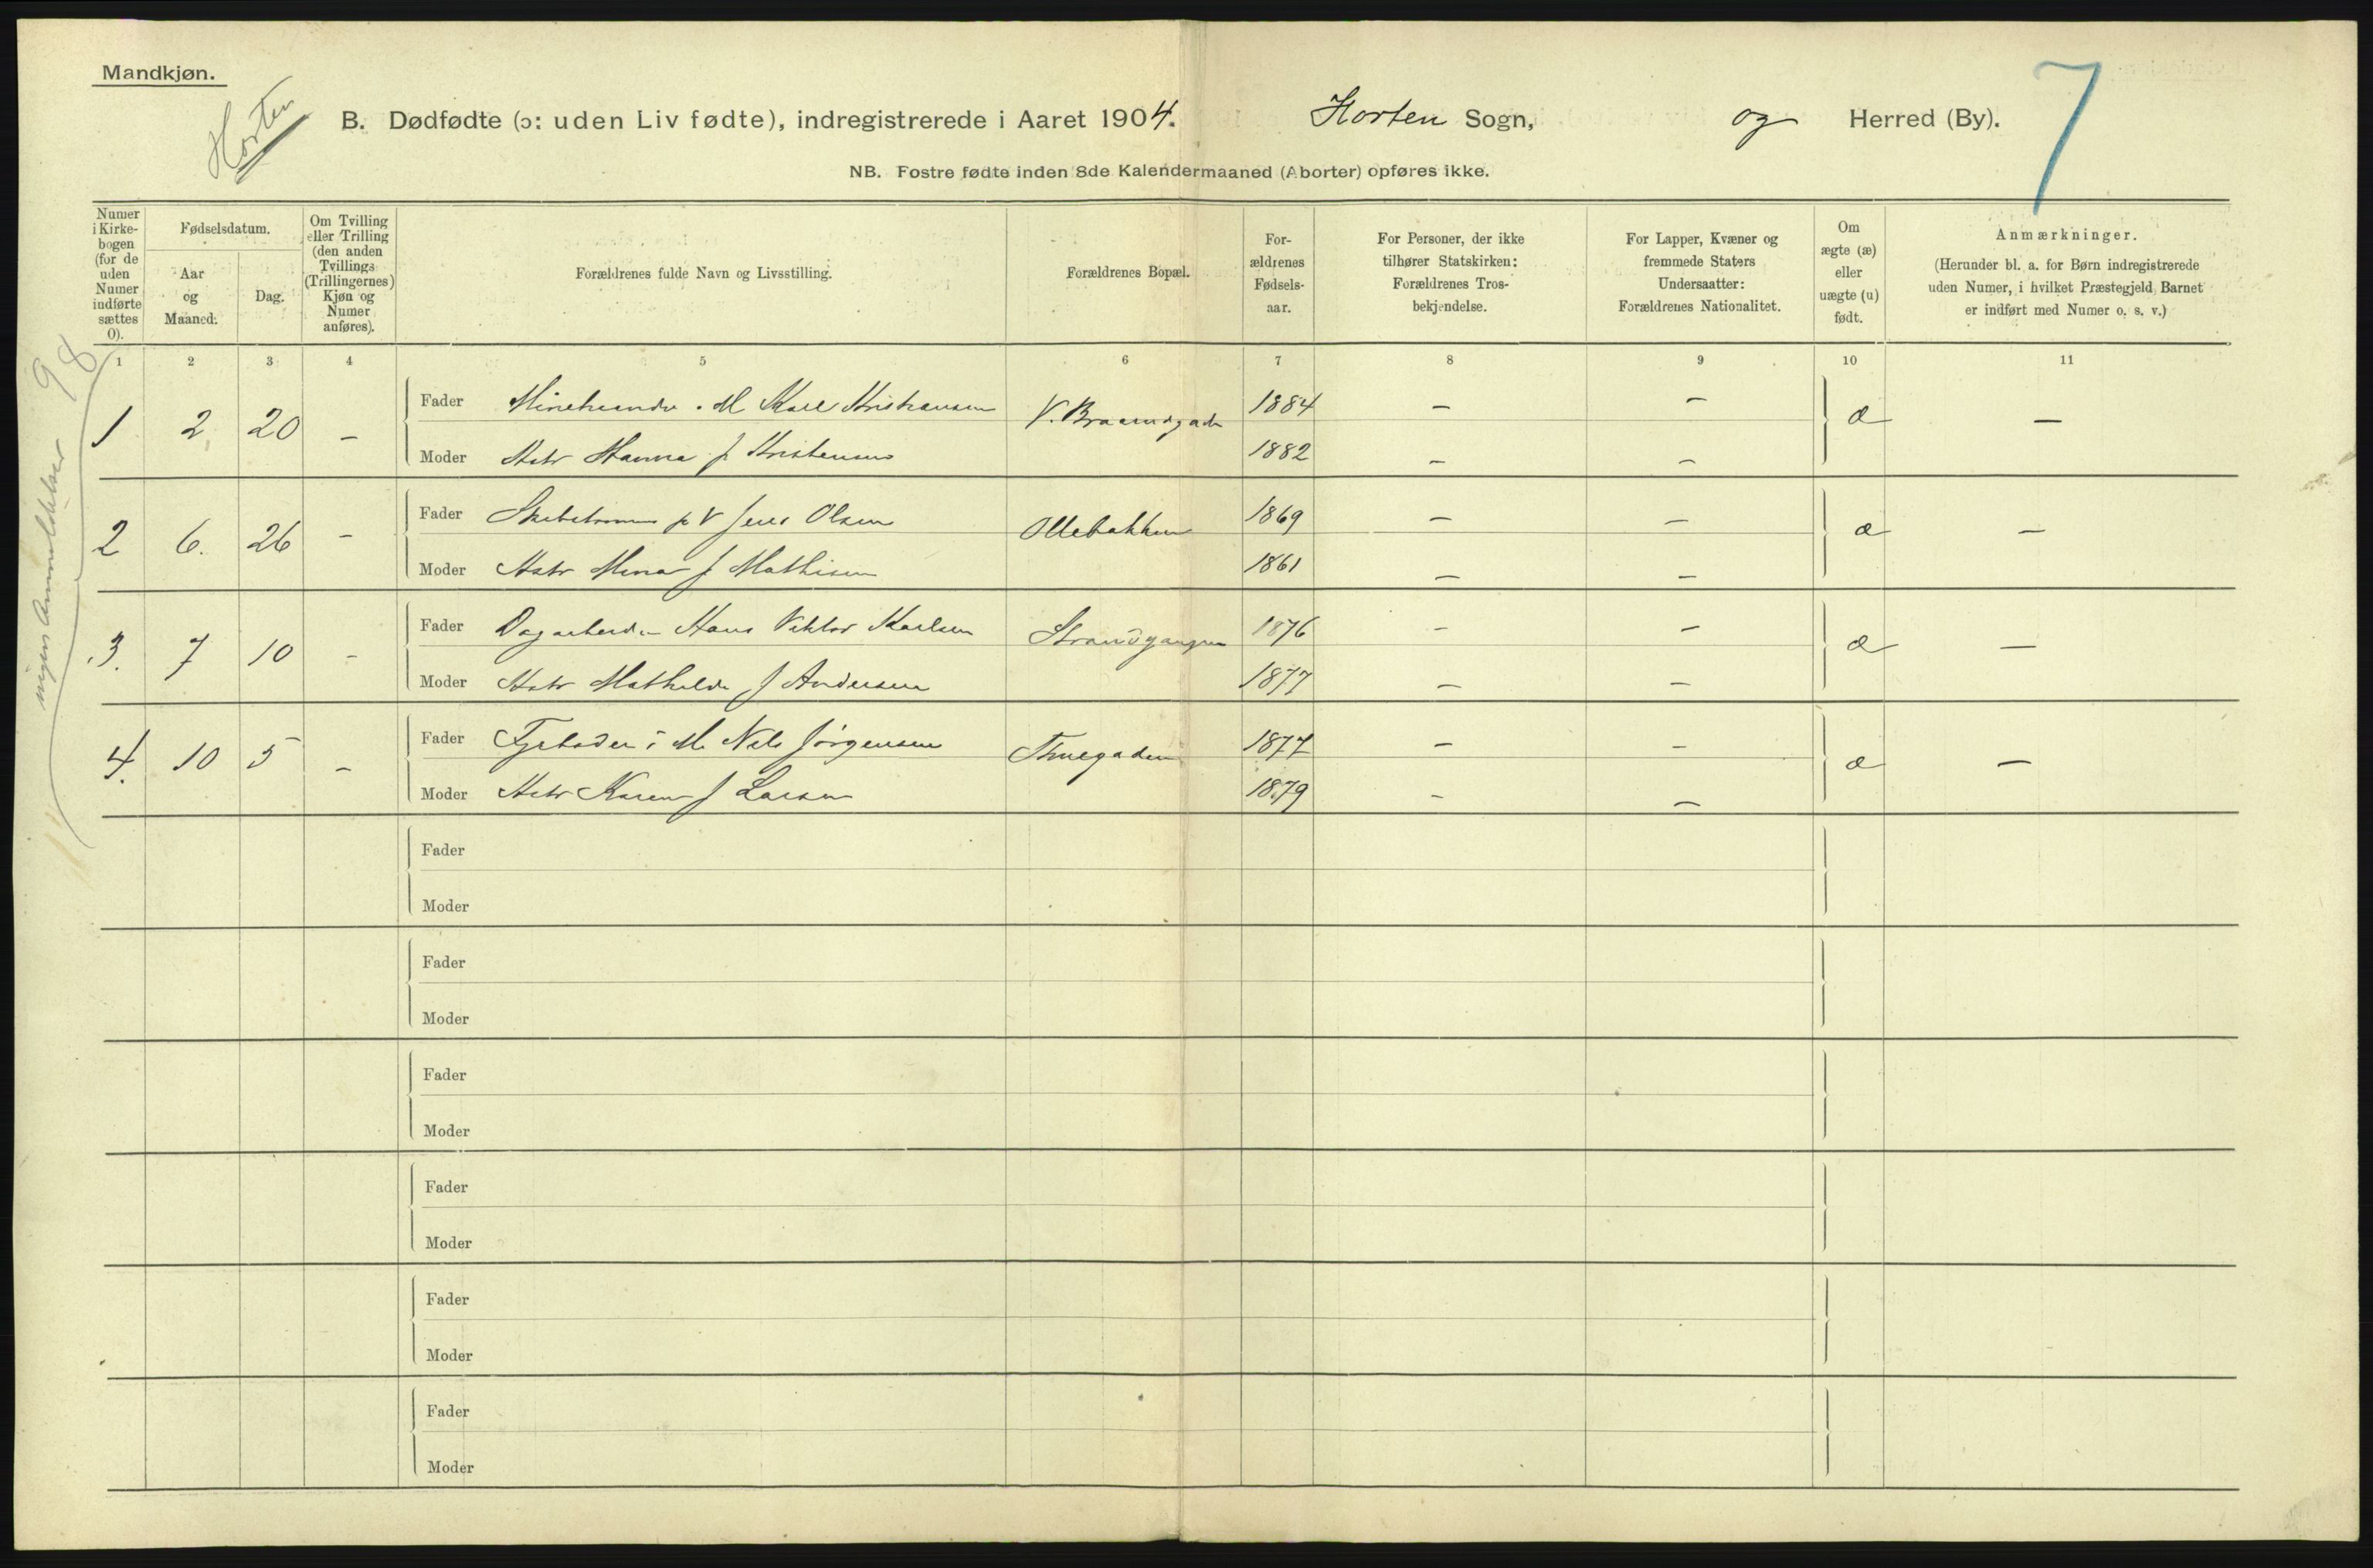 Mandkjøn.
Horten
7
B. Dødfødte (ɔ: uden Liv fødte), indregistrerede i Aaret 1904. Horten Sogn, og Herred (By).
NB. Fostre fødte inden 8de Kalendermaaned (Aborter) opføres ikke.
Numer i Kirkebogen (for de uden Numer indførte sættes 0).
Fødselsdatum.
Aar og Maaned.
Dag.
Om Tvilling eller Trilling (den anden Tvillings (Trillingernes) Kjøn og Numer anføres).
Forældrenes fulde Navn og Livsstilling.
Forældrenes Bopæl.
Forældrenes Fødselsaar.
For Personer, der ikke tilhører Statskirken: Forældrenes Trosbekjendelse.
For Lapper, Kvæner og fremmede Staters Undersaatter: Forældrenes Nationalitet.
Om ægte (æ) eller uægte (u) født.
Anmærkninger.
(Herunder bl. a. for Børn indregistrerede uden Numer, i hvilket Præstegjeld Barnet er indført med Numer o. s. v.)
1 2 3 4 5 6 7 8 9 10 11
98
1 2 20 – Fader M Karl Kristiansen V. Braarudgade 1884 – – æ –
Moder Hanna f Kristensen 1882 – –
2 6. 26 – Fader Jens Olsen Ollebakken 1869 – – æ –
Moder Mina f Mathisen 1861 – –
3. 7 10 – Fader Dagarbeider Hans Viktor Karlsen Strandgangen 1876 – – æ –
Moder Mathilde f Andersen 1877 – –
4. 10 5 – Fader Fyrbøder i M Nils Jørgensen Thuegaden 1877 – – æ –
Moder Karen f Larsen 1879 – –
Fader
Moder
Fader
Moder
Fader
Moder
Fader
Moder
Fader
Moder
Fader
Moder